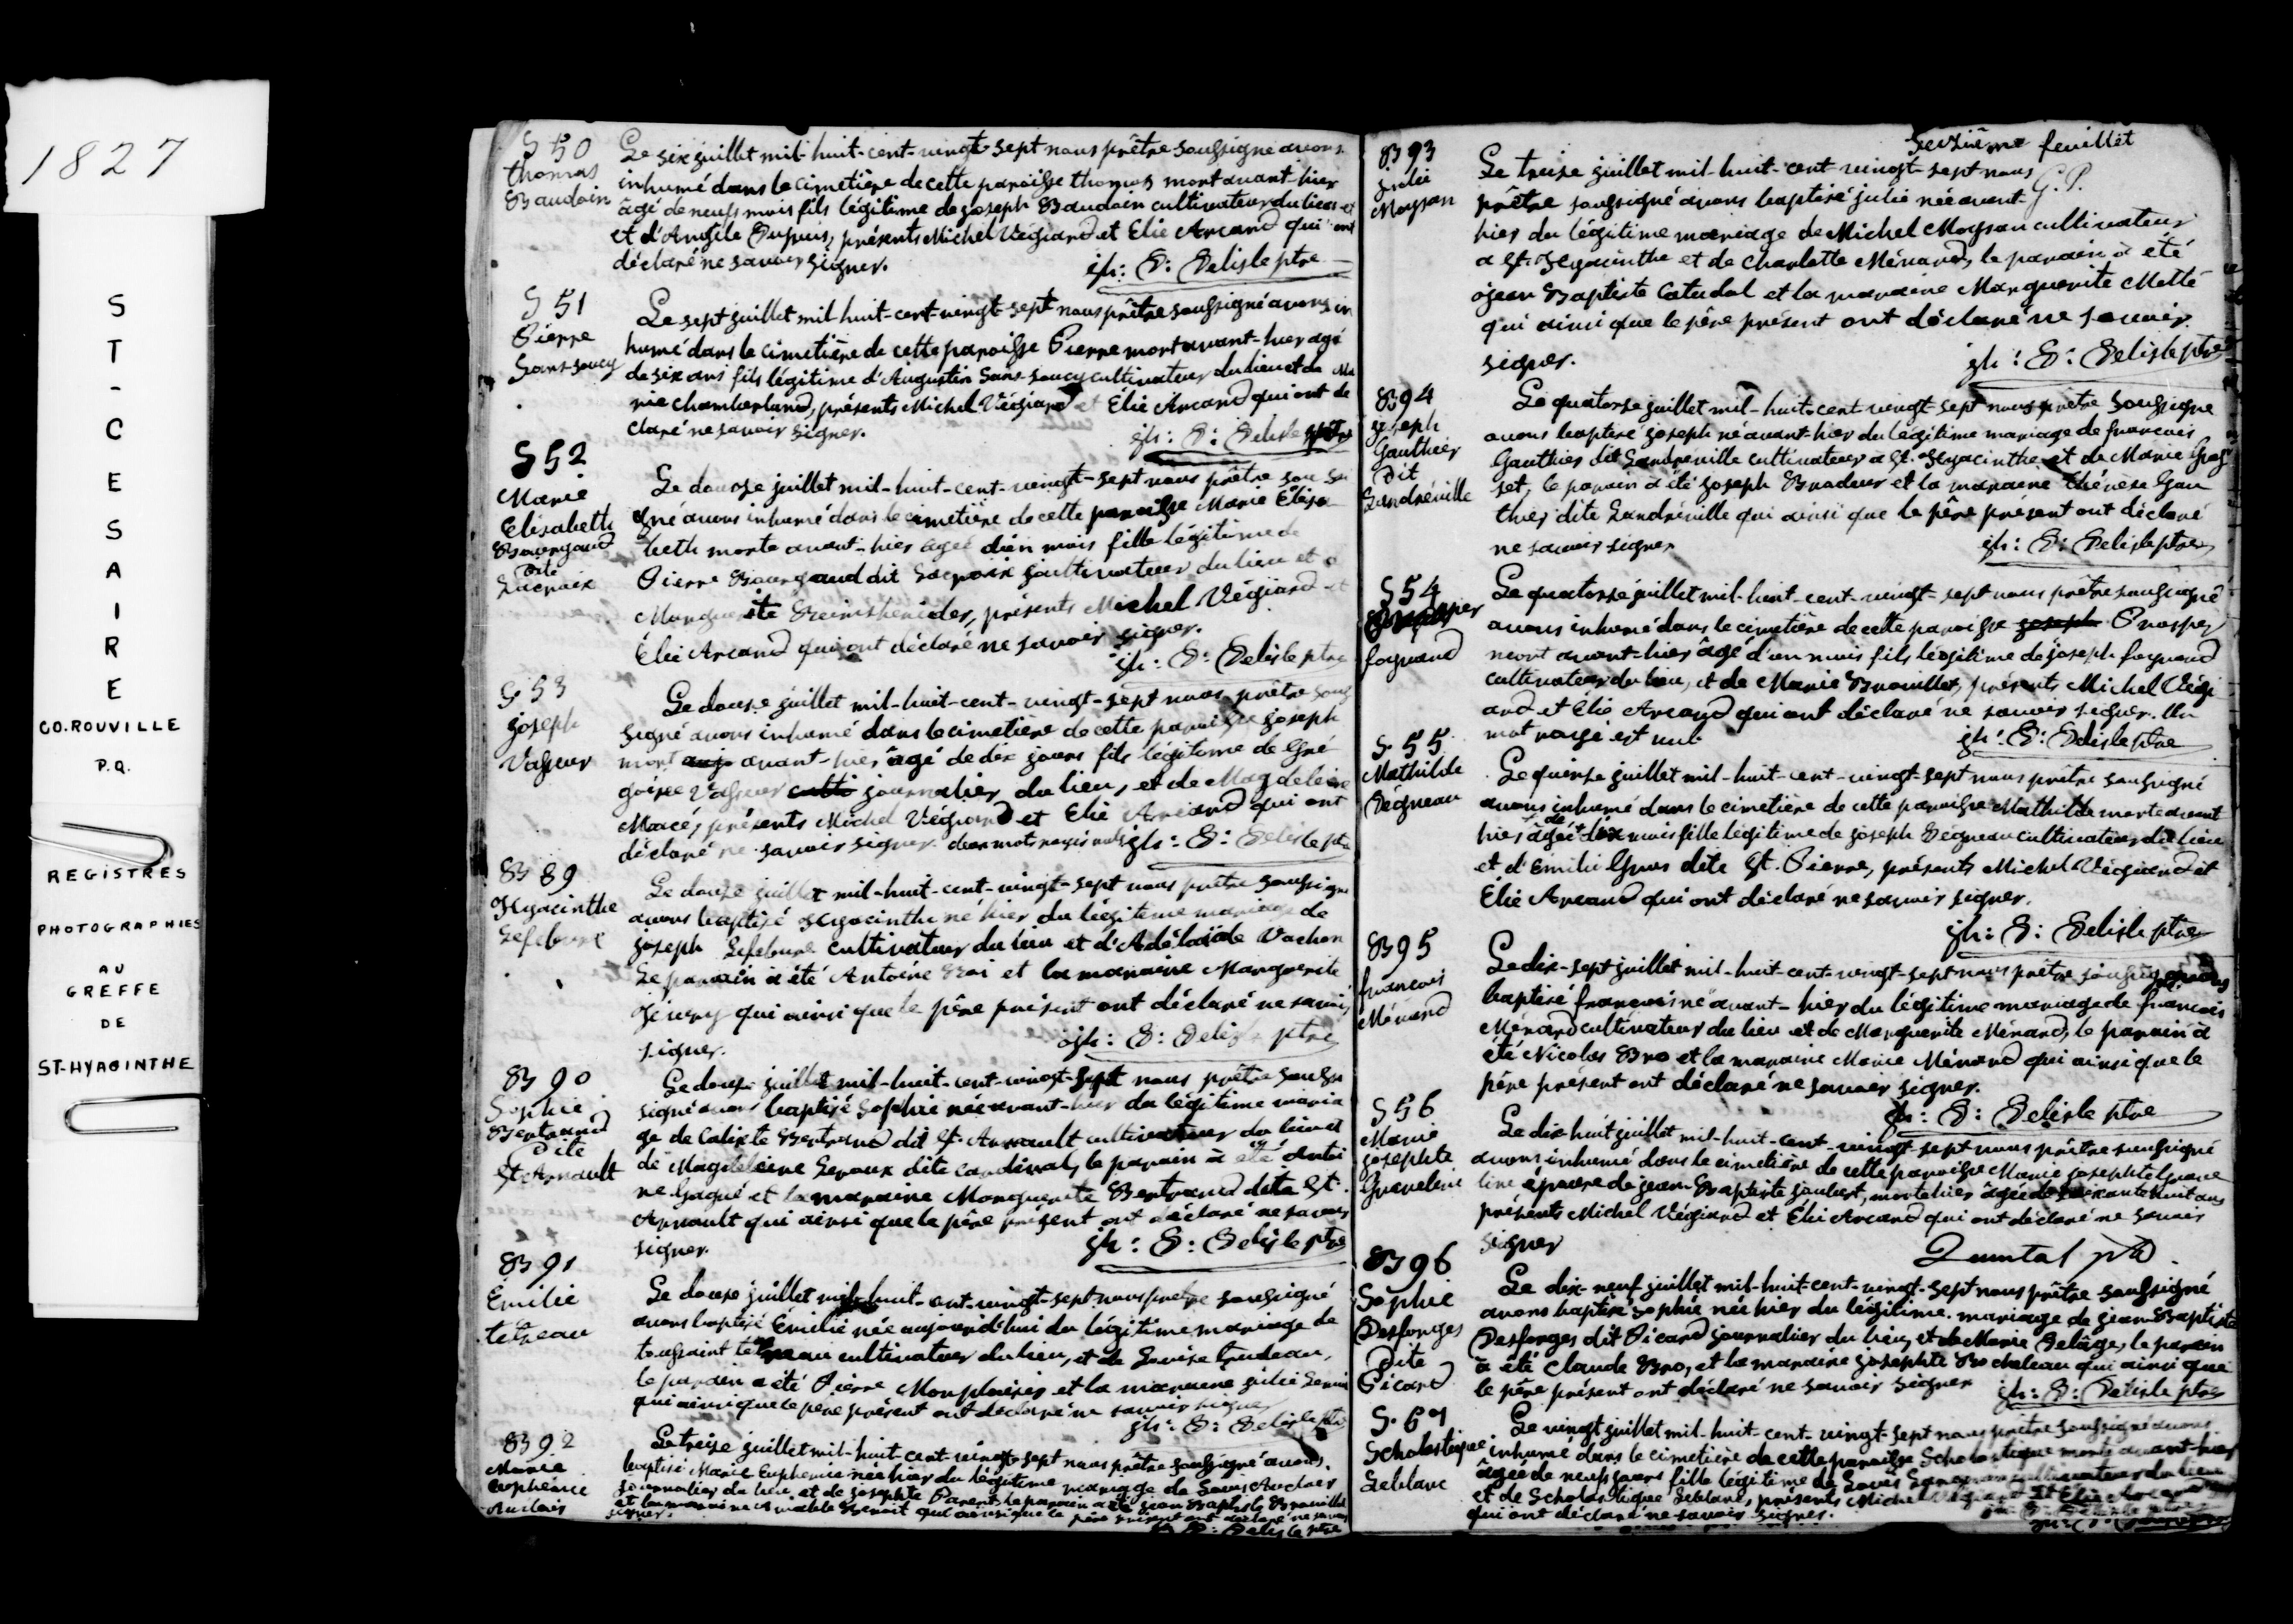 1827
ST-CESAIRE
CO. ROUVILLE
P.Q.
REGISTRES
PHOTOGRAPHIES
AU
GREFFE
DE
ST-HYACINTHE
S 50
thomas
Baudoin
Le six juillet mil-huit-cent-vingt-sept nous prêtre soussigné avons
inhumé dans le cimetière de cette paroisse thomas mort avant hier
âgé de neufs mois fils légitime de joseph Baudoin cultivateur du lieu
et d'Angèle Dupuis, présents Michel Végiard et Elie Arcand qui ont
déclaré ne savoir signer.
jh: D: Delisle ptre
S 51
Pierre
Sans-soucy
Le sept juillet mil-huit-cent-vingt-sept nous prêtre soussigné avons in
humé dans le cimetière de cette paroisse Pierre mort avant-hier agé
de six ans fils légitime d'Augustin Sans-soucy cultivateur du lieu et de Ma
rie Chamberland, présents Michel Végiard et Elie Arcand qui ont dé
claré ne savoir signer.
jh: D: Delisle ptre
S 52
Marie
Elisabeth
Bourgaud
dite
Lacroix
Le douze juillet mil-huit-cent-vingt-sept nous prêtre sous si
gné avons inhumé dans le cimetière de cette paroisse Marie Elisa
beth morte avant-hier agée d'un mois fille légitime de
Pierre Bourgaud dit Lacroix cultivateur du lieu et
Marguerite présents Michel Végiard et
Élie Arcand qui ont déclaré ne savoir signer.
jh: D: Delisle ptre
S 53
joseph
Vasseur
Le douze juillet mil-huit-cent-vingt-sept nous prêtre sous
signé avons inhumé dans le cimetière de cette paroisse joseph
mort avant-hier âgé de dix jours fils légitime de Gré
goire Vasseur journalier du lieu, et de Magdeleine
Macé, présents Michel Végiard et Elie Arcand qui ont
déclaré ne savoir signer. deux mots rayés nuls jh: D: Delisle ptre
B 89
Hyacinthe
Lefebvre
Le douze juillet mil-huit-cent-vingt-sept nous prêtre soussigné
avons baptisé Hyacinthe né hier du légitime mariage de
joseph Lefebvre cultivateur du lieu et d'Adélaïde Vachon
Le parain a été Antoine Roi et la maraine Marguerite
qui ainsi que le père présent ont déclaré ne savoir
signer.
jh: D: Delisle ptre
B 90
Sophie
Bertrand
dite
St Arnault
Le douze juillet mil-huit-cent-vingt-sept nous prêtre sousi
signé avons baptisé Sophie née avant-hier du légitime maria
ge de Calixte Bertrand dit St. Arnault cultivateur du lieu et
de Magdeleine Leroux dite Cardinal, le parain a été Antoi
ne Gagné et la maraine Marguerite Bertrand dite St.
Arnault qui ainsi que le père présent ont déclaré ne savoir
signer.
jh: D: Delisle ptre
B 91
Émilie
tetreau
Le douze juillet mil-huit-cent-vingt-sept nous prêtre soussigné
avons baptisé Émilie née aujourd'hui du légitime mariage de
toussaint tetreau cultivateur du lieu, et de Louise trudeau,
le parain a été Pierre Monplaisir et la maraine julie
qui ainsi que le père présent ont déclaré ne savoir signer
jh: D: Delisle ptre
B 92
Marie
Euphémie
Auclair
Le treize juillet mil-huit-cent-vingt-sept nous prêtre soussigné avons
baptisé Marie Euphémie née hier du légitime mariage de Louis Auclair
journalier du lieu, et de josephte Parent, le parain a été jean Baptiste Brouillet
et la maraine Benoit qui ainsi que le père présent ont déclaré ne savoir
signer.
D: Delisle ptre
feuillet
G.P.
B 93
julie
Moysan
Le treize juillet mil-huit-cent-vingt-sept nous
prêtre soussigné avons baptisé julie née avant
hier du légitime mariage de Michel Moysan cultivateur
a St. Hyacinthe et de Charlotte Ménard, le parain a été
jean Baptiste Catudal et la maraine Marguerite Motte
qui ainsi que le père présent ont déclaré ne savoir
signer.
jh: D: Delisle ptre
B 94
joseph
Gauthier
dit
Landréville
Le quatorze juillet mil-huit-cent-vingt-sept nous prêtre soussigné
avons baptisé joseph né avant-hier du légitime mariage de francois
Gauthier dit Landréville cultivateur a St. Hyacinthe et de Marie Gros
set, le parain a été joseph Bradeur et la maraine thérèse Gau
thier dite Landréville qui ainsi que le père présent ont déclaré
ne savoir signer
jh: D: Delisle ptre
S 54
Prosper
foquand
Le quatorze juillet mil-huit-cent-vingt-sept nous prêtre soussigné
avons inhumé dans le cimetière de cette paroisse joseph Prosper
mort avant-hier âgé d'un mois fils légitime de joseph foquand
cultivateur du lieu, et de Marie Brouillet, présents Michel Végi
ard et Elie Arcand qui ont déclaré ne savoir signer. Un
mot rayé est nul.
jh: D: Delisle ptre
S. 55
Mathilde
Dégneau
Le quinze juillet mil-huit-cent-vingt-sept nous prêtre soussigné
avons inhumé dans le cimetière de cette paroisse Mathilde morte avant
hier âgée de dix mois fille légitime de joseph Degneau cultivateur du lieu
et d'Emilie dite St. Pierre, présents Michel Végiard et
Elie Arcand qui ont déclaré ne savoir signer.
jh: D: Delisle ptre
B 95
francois
Ménard
Le dix-sept juillet mil-huit-cent-vingt-sept nous prêtre soussigné avons
baptisé francois né avant-hier du légitime mariage de francois
Ménard cultivateur du lieu et de Marguerite Ménard, le parain a
été Nicolas Bro et la maraine Marie Ménard qui ainsi que le
père présent ont déclaré ne savoir signer.
jh: D: Delisle ptre
S 56
Marie
josephte
Graveline
Le dix-huit juillet mil-huit-cent-vingt-sept nous prêtre soussigné
avons inhumé dans le cimetière de cette paroisse Marie josephte Grave
line épouse de jean Baptiste joubert, morte hier âgée de soixante huit ans
présents Michel Végiard et Elie Arcand qui ont déclaré ne savoir
signer
Quintal ptre
B 96
Sophie
Desforges
dite
Picard
Le dix-neuf juillet mil-huit-cent-vingt-sept nous prêtre soussigné
avons baptisé Sophie née hier du légitime mariage de jean Baptiste
Desforges dit Picard journalier du lieu, et de Marie Delâge, le parain
a été Claude Bro, et la maraine josephte Rocheleau qui ainsi que
le père présent ont déclaré ne savoir signer
jh: D: Delisle ptre
S. 67
Scholastique
Leblanc
Le vingt juillet mil-huit-cent-vingt-sept nous prêtre soussigné avons
inhumé dans le cimetière de cette paroisse Scholastique morte avant-hier
âgée de neufs jours fille légitime de Louis cultivateur du lieu
et de Scholastique Leblanc, présents Michel Végiard et Elie Arcand
qui ont déclaré ne savoir signer.